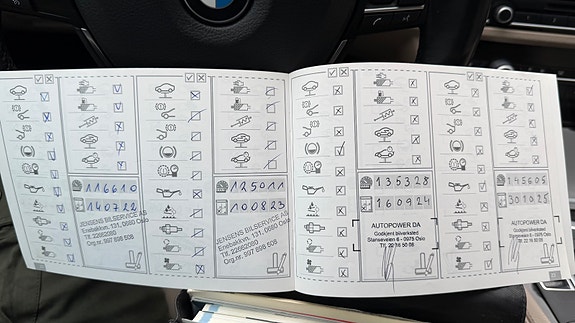 116610
140722
JENSENS BILSERVICE AS
Enebakkvn. 131, 0680 Oslo
Tlf. 22682080
Org.nr. 997 898 508
125011
100823
JENSENS BILSERVICE AS
Enebakkvn. 131, 0680 Oslo
Tlf. 22682080
Org.nr. 997 898 508
135328
160924
AUTOPOWER DA
Godkjent bilverksted
Stanseveien 6 - 0975 Oslo
Tlf. 22 16 50 08
145605
301025
AUTOPOWER DA
Godkjent bilverksted
Stanseveien 6 - 0975 Oslo
Tlf. 22 16 50 08